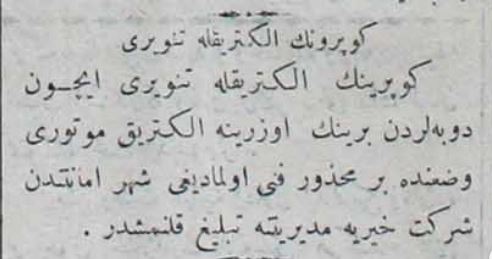 كوپرونك الكتريقله تنويرى
كوپرينك الكتريقله تنويرى ايچـون
دوبه‌لردن برينك اوزرينه الكتريق موتورى
وضعنده بر محذور فنى اولماديغى شهر امانتندن
شركت خيريه مديريتنه تبليغ قلنمشدر .